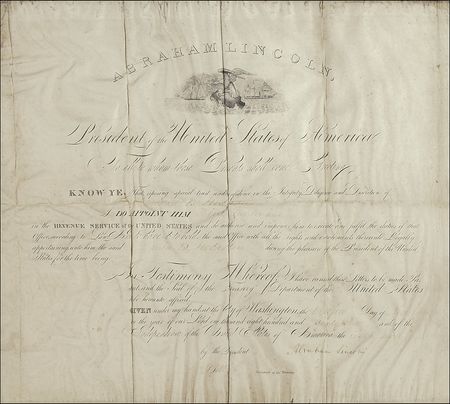 ABRAHAM LINCOLN,
President of the United States of America
To all to whom these Presents shall come Greeting
KNOW YE, That reposing special trust and confidence in the Integrity, Diligence and Discretion of
I DO APPOINT HIM
in the REVENUE SERVICE of the UNITED STATES and do authorize and empower him to execute and fulfil the duties of that
Office according to Law: And to Have and to Hold the said Office with all the rights and emoluments thereunto legally
appertaining unto him the said during the pleasure of the President of the United
States for the time being.
In Testimony Whereof I have caused these Letters to be made Pat
ent and the Seal of the Treasury Department of the United States
to be hereunto affixed.
GIVEN under my hand, at the City of Washington, the Day of
in the year of our Lord one thousand eight hundred and and of the
Independence of the United States of America the
by the President Abraham Lincoln
Secretary of the Treasury